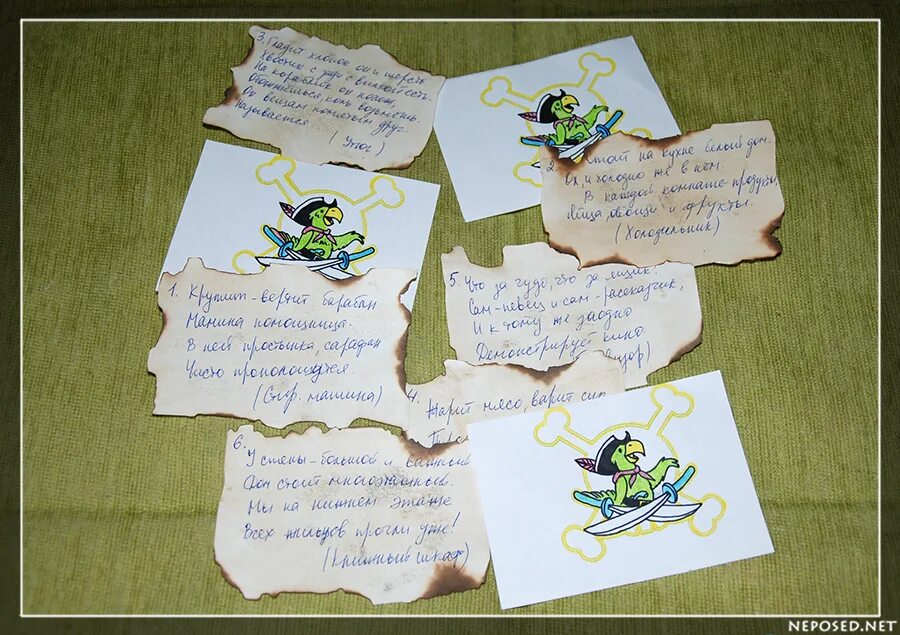 3. Гладит хлопок он и шерсть
Хвостик с зади с вилкой есть.
На кораблик он похож,
Он вещам помятым друг.
Называется
(Утюг)
2. Стоит на кухне белый дом.
Ох, и холодно же в нем.
В каждой комнате продукты,
Яйца, овощи и фрукты.
(Холодильник)
1. Крутит-вертит барабан
Мамина помощница.
В ней простынка, сарафан
Чисто прополощутся.
(Стир. машина)
5. Что за чудо, что за ящик?
Сам-певец и сам-рассказчик,
И к тому же заодно
Демонстрирует кино.
4. Жарит мясо, варит суп
6.
У стены-большой и важный
Дом стоит многоэтажный.
Мы на нижнем этаже
Всех жильцов прочли уже!
(Книжный шкаф)
NEPOSED.NET